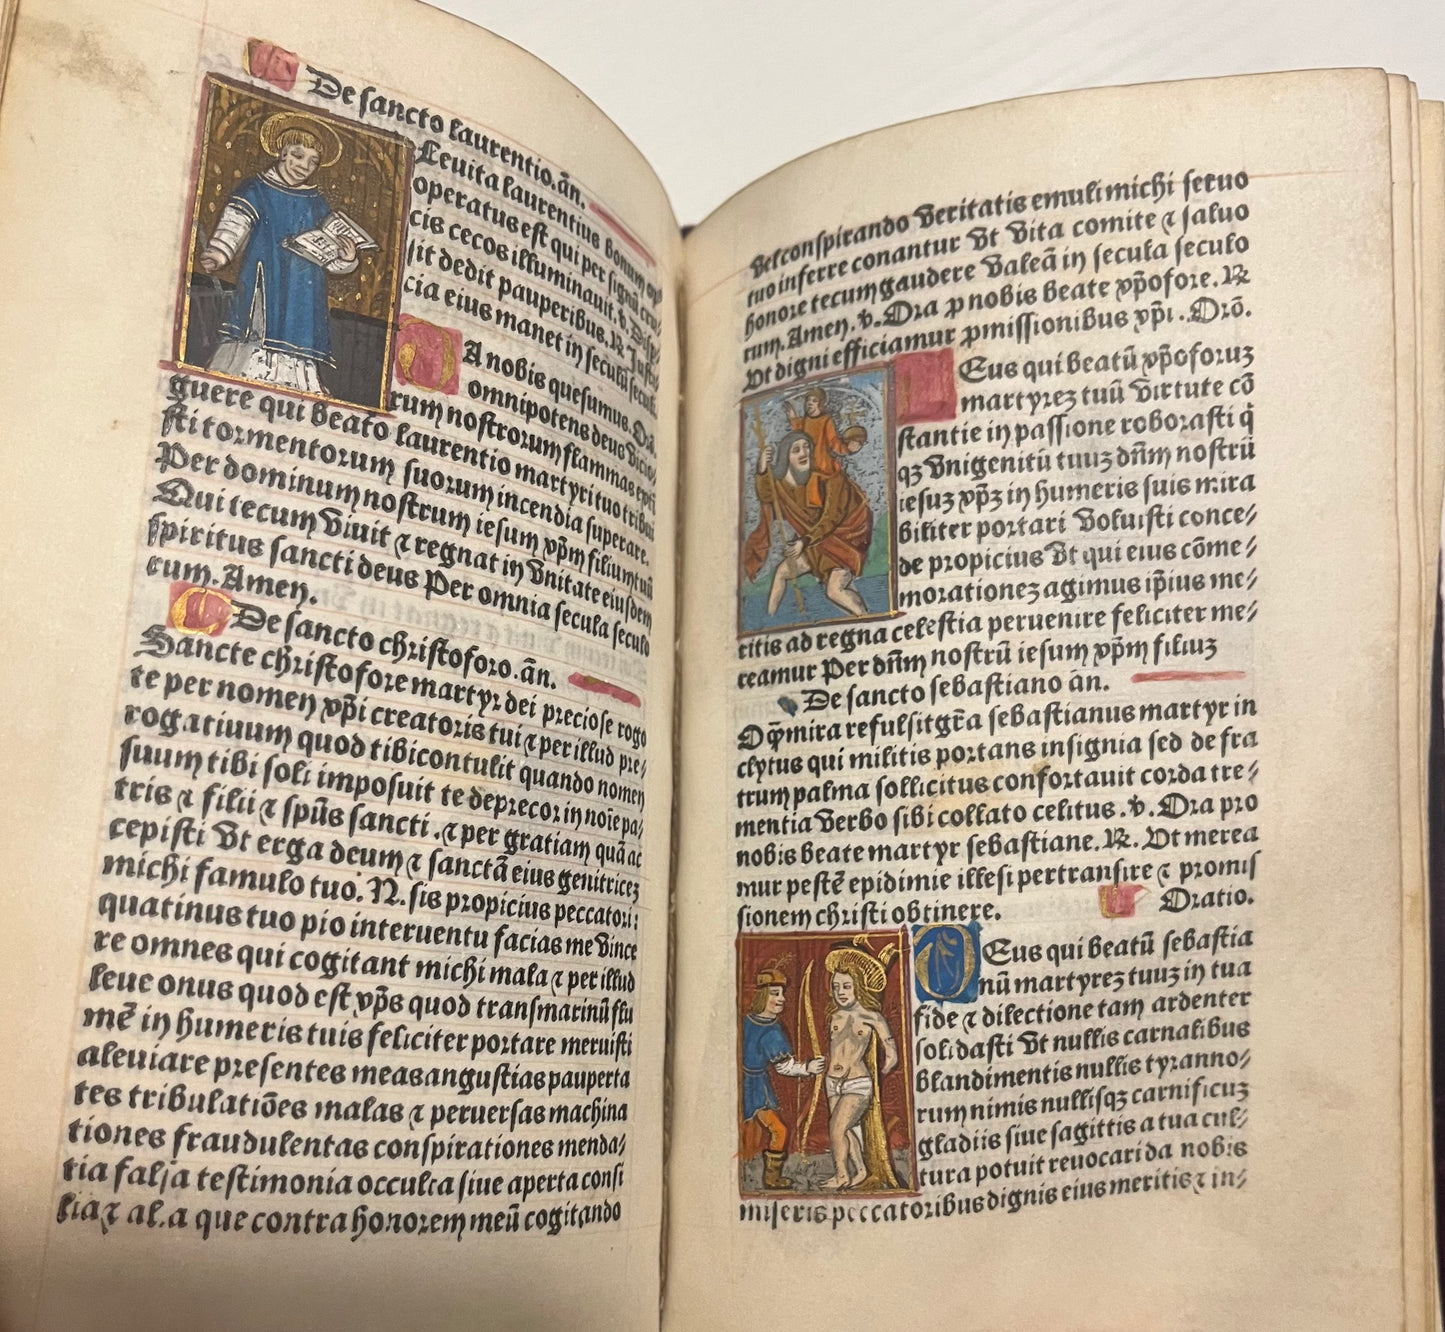 De sancto laurentio. añ.
Leuita laurentius bonum opꝰ
operatus est qui per signū cru⸗
cis cecos illuminauit. v̄. Disp⸗
sit dedit pauperibus. ℞. Justi⸗
cia eius manet in seculū seculi.
DA nobis quesumus. Orō.
omnipotens deus vicio⸗
rum nostrorum flammas exti
guere qui beato laurentio martyri tuo tribui
sti tormentorum suorum incendia superare.
Per dominum nostrum iesum xp̄m filium tuū
Qui tecum viuit ⁊ regnat in vnitate eiusdem
spiritus sancti deus Per omnia secula seculo
rum. Amen.
De sancto christoforo. añ.
Sancte christofore martyr dei preciose rogo
te per nomen xp̄i creatoris tui ⁊ per illud pre⸗
rogatiuum quod tibi contulit quando nomen
suum tibi soli imposuit te deprecor in noīe pa⸗
tris ⁊ filii ⁊ sp̄us sancti . ⁊ per gratiam quā ac
cepisti vt erga deum ⁊ sanctā eius genitricez
michi famulo tuo. N. sis propicius peccatori:
quatinus tuo pio interuentu facias me vince
re omnes qui cogitant michi mala ⁊ per illud
leue onus quod est xp̄s quod transmarinū flu
mē in humeris tuis feliciter portare meruisti
aleuiare presentes meas angustias pauperta
tes tribulatiōes malas ⁊ peruersas machina
tiones fraudulentas conspirationes menda⸗
tia falsa testimonia occulta siue aperta consi
lia ⁊ alia que contra honorem meū cogitando
vel conspirando veritatis emuli michi seruo
tuo inferre conantur vt vita comite ⁊ saluo
honore tecum gaudere valeā in secula seculo
rum. Amen. v̄. Ora p nobis beate xp̄ofore. ℞
Vt digni efficiamur pmissionibus xp̄i . Orō.
DEus qui beatū xp̄oforuz
martyrez tuū virtute cō
stantie in passione roborasti q̄
qz vnigenitū tuuz dn̄m nostrū
iesuz xp̄z in humeris suis mira
biliter portari voluisti conce⸗
de propicius vt qui eius cōme⸗
morationez agimus ip̄ius me⸗
ritis ad regna celestia peruenire feliciter me⸗
reamur Per dn̄m nostrū iesum xp̄m filiuz
De sancto sebastiano añ.
O q̄ mira refulsit gr̄a sebastianus martyr in
clytus qui militis portans insignia sed de fra
trum palma sollicitus confortauit corda tre⸗
mentia verbo sibi collato celitus. v̄. Ora pro
nobis beate martyr sebastiane. ℞. Vt merea
mur pestē epidimie illesi pertransire ⁊ promis
sionem christi obtinere. Oratio.
DEus qui beatū sebastia
nū martyrez tuuz in tua
fide ⁊ dilectione tam ardenter
solidasti vt nullis carnalibus
blandimentis nullis tyranno⸗
rum nimis nullisqz carnificuz
gladiis siue sagittis a tua cul⸗
tura potuit reuocari da nobis
miseris peccatoribus dignis eius meritis ⁊ in⸗